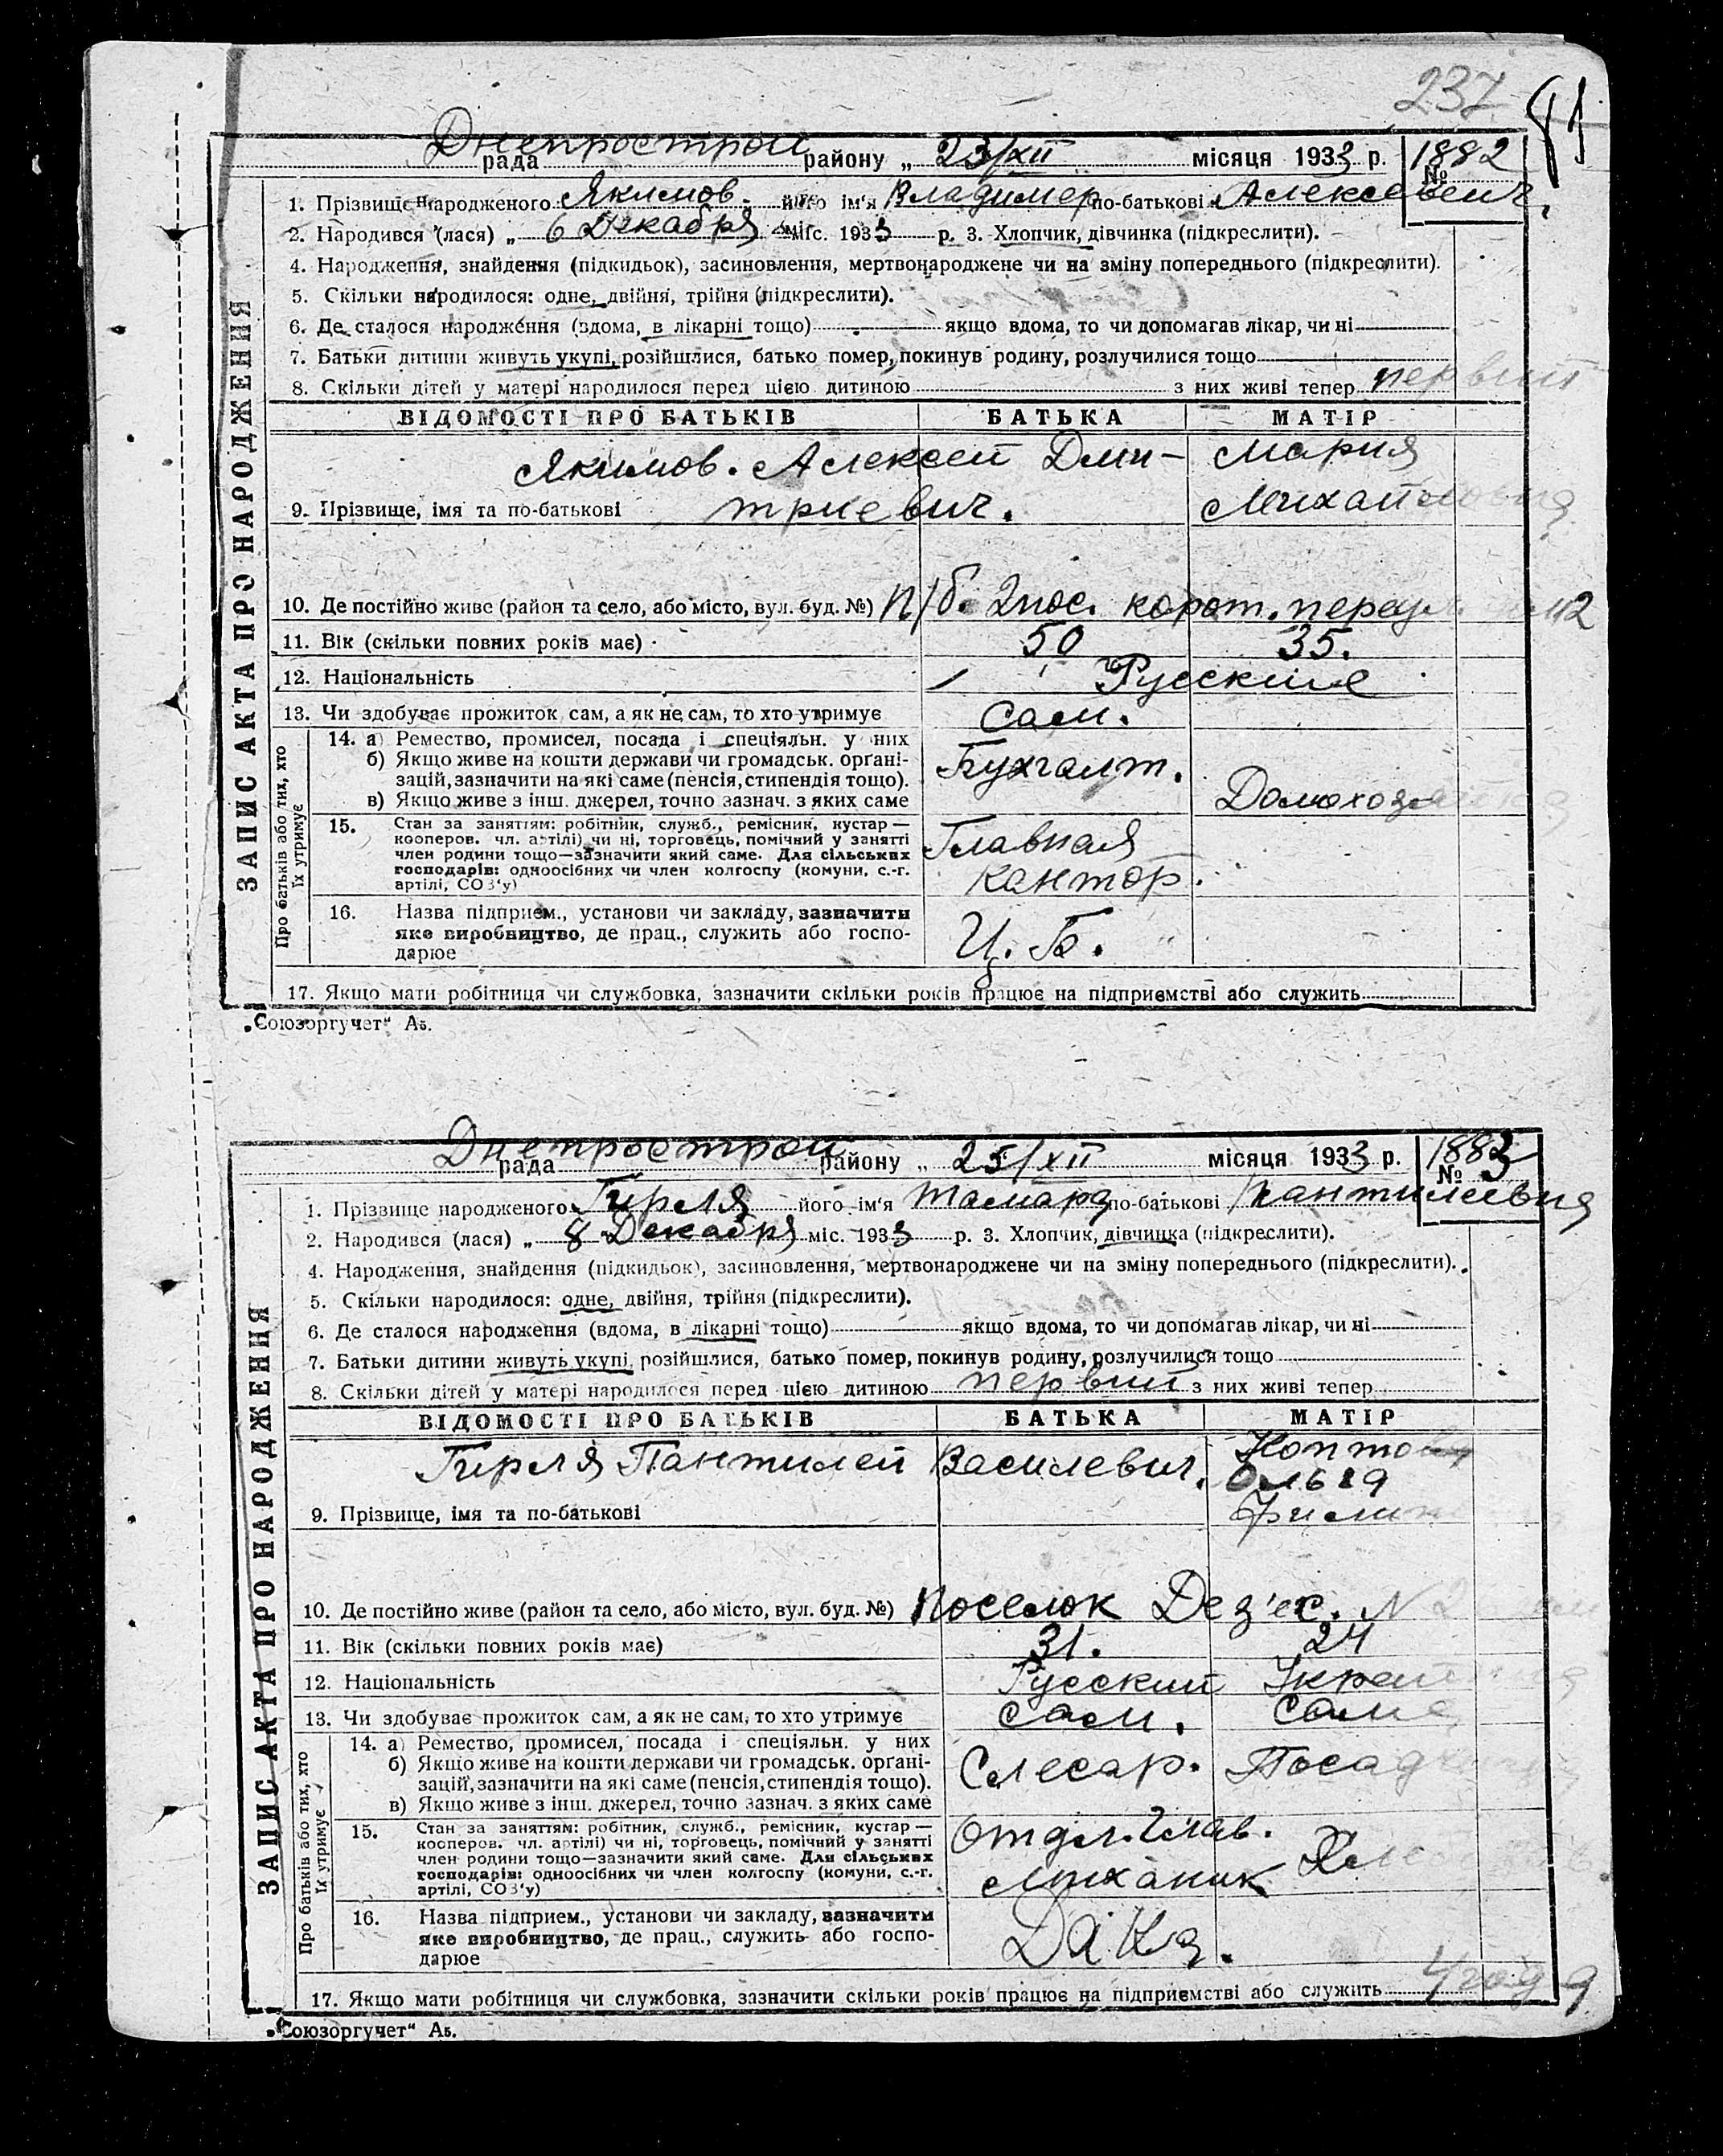 237
81
Днепрострой
рада району „ 23/XII місяця 1933 р. 1882
№
1. Прізвище народженого Якимов його ім'я Владимер по-батькові Алексеевич.
2. Народився (лася) „ 6 Декабря міс. 1933 р. 3. Хлопчик, дівчинка (підкреслити).
4. Народження, знайдення (підкидьок), засиновлення, мертвонароджене чи на зміну попереднього (підкреслити).
5. Скільки народилося: одне, двійня, трійня (підкреслити).
6. Де сталося народження (вдома, в лікарні тощо) якщо вдома, то чи допомагав лікар, чи ні
7. Батьки дитини живуть укупі, розійшлися, батько помер, покинув родину, розлучилися тощо
8. Скільки дітей у матері народилося перед цією дитиною з них живі тепер первый
ЗАПИС АКТА ПРО НАРОДЖЕННЯ
ВІДОМОСТІ ПРО БАТЬКІВ БАТЬКА МАТІР
Якимов. Алексей Дми- Мария
9. Прізвище, імя та по-батькові триевич. Михайловна
10. Де постійно живе (район та село, або місто, вул. буд. №) п/б. 2 пос. корот. переул. 12
11. Вік (скільки повних років має) 50 35.
12. Національність Русские
13. Чи здобуває прожиток сам, а як не сам, то хто утримує Сам.
Про батьків або тих, хто їх утримує
14. а) Ремество, промисел, посада і спеціяльн. у них
б) Якщо живе на кошти держави чи громадськ. органі-
зацій, зазначити на які саме (пенсія, стипендія тощо). Бухгалт.
в) Якщо живе з інш. джерел, точно зазнач. з яких саме Домохозяйка
15. Стан за заняттям: робітник, служб., ремісник, кустар —
кооперов. чл. артілі) чи ні, торговець, помічний у занятті Главная
член родини тощо—зазначити який саме. Для сільських
господарів: одноосібних чи член колгоспу (комуни, с.-г. кантор.
артілі, СОЗ'у)
16. Назва підприєм., установи чи закладу, зазначити
яке виробництво, де прац., служить або госпо- Ц. Б.
дарює
17. Якщо мати робітниця чи службовка, зазначити скільки років працює на підприємстві або служить
„Союзоргучет“ Аз.
Днепрострой
рада району „ 25/XII місяця 1933 р. 1883
№
1. Прізвище народженого Гирля його ім'я Тамара по-батькові Пантилевна
2. Народився (лася) „ 8 Декабря міс. 1933 р. 3. Хлопчик, дівчинка (підкреслити).
4. Народження, знайдення (підкидьок), засиновлення, мертвонароджене чи на зміну попереднього (підкреслити).
5. Скільки народилося: одне, двійня, трійня (підкреслити).
6. Де сталося народження (вдома, в лікарні тощо) якщо вдома, то чи допомагав лікар, чи ні
7. Батьки дитини живуть укупі, розійшлися, батько помер, покинув родину, розлучилися тощо
8. Скільки дітей у матері народилося перед цією дитиною первый з них живі тепер
ЗАПИС АКТА ПРО НАРОДЖЕННЯ
ВІДОМОСТІ ПРО БАТЬКІВ БАТЬКА МАТІР
Гирля Пантилей Василевич.
Ольга
9. Прізвище, імя та по-батькові
10. Де постійно живе (район та село, або місто, вул. буд. №) поселок Дез'ес. № 2
11. Вік (скільки повних років має) 31. 24
12. Національність Русский Украинка
13. Чи здобуває прожиток сам, а як не сам, то хто утримує Сам. Сама
Про батьків або тих, хто їх утримує
14. а) Ремество, промисел, посада і спеціяльн. у них
б) Якщо живе на кошти держави чи громадськ. органі-
зацій, зазначити на які саме (пенсія, стипендія тощо). Слесар.
в) Якщо живе з інш. джерел, точно зазнач. з яких саме
15. Стан за заняттям: робітник, служб., ремісник, кустар — Отдл. Глав.
кооперов. чл. артілі) чи ні, торговець, помічний у занятті
член родини тощо—зазначити який саме. Для сільських
господарів: одноосібних чи член колгоспу (комуни, с.-г. миханик
артілі, СОЗ'у)
16. Назва підприєм., установи чи закладу, зазначити
яке виробництво, де прац., служить або госпо-
дарює
17. Якщо мати робітниця чи службовка, зазначити скільки років працює на підприємстві або служить 4 года
„Союзоргучет“ Аз.